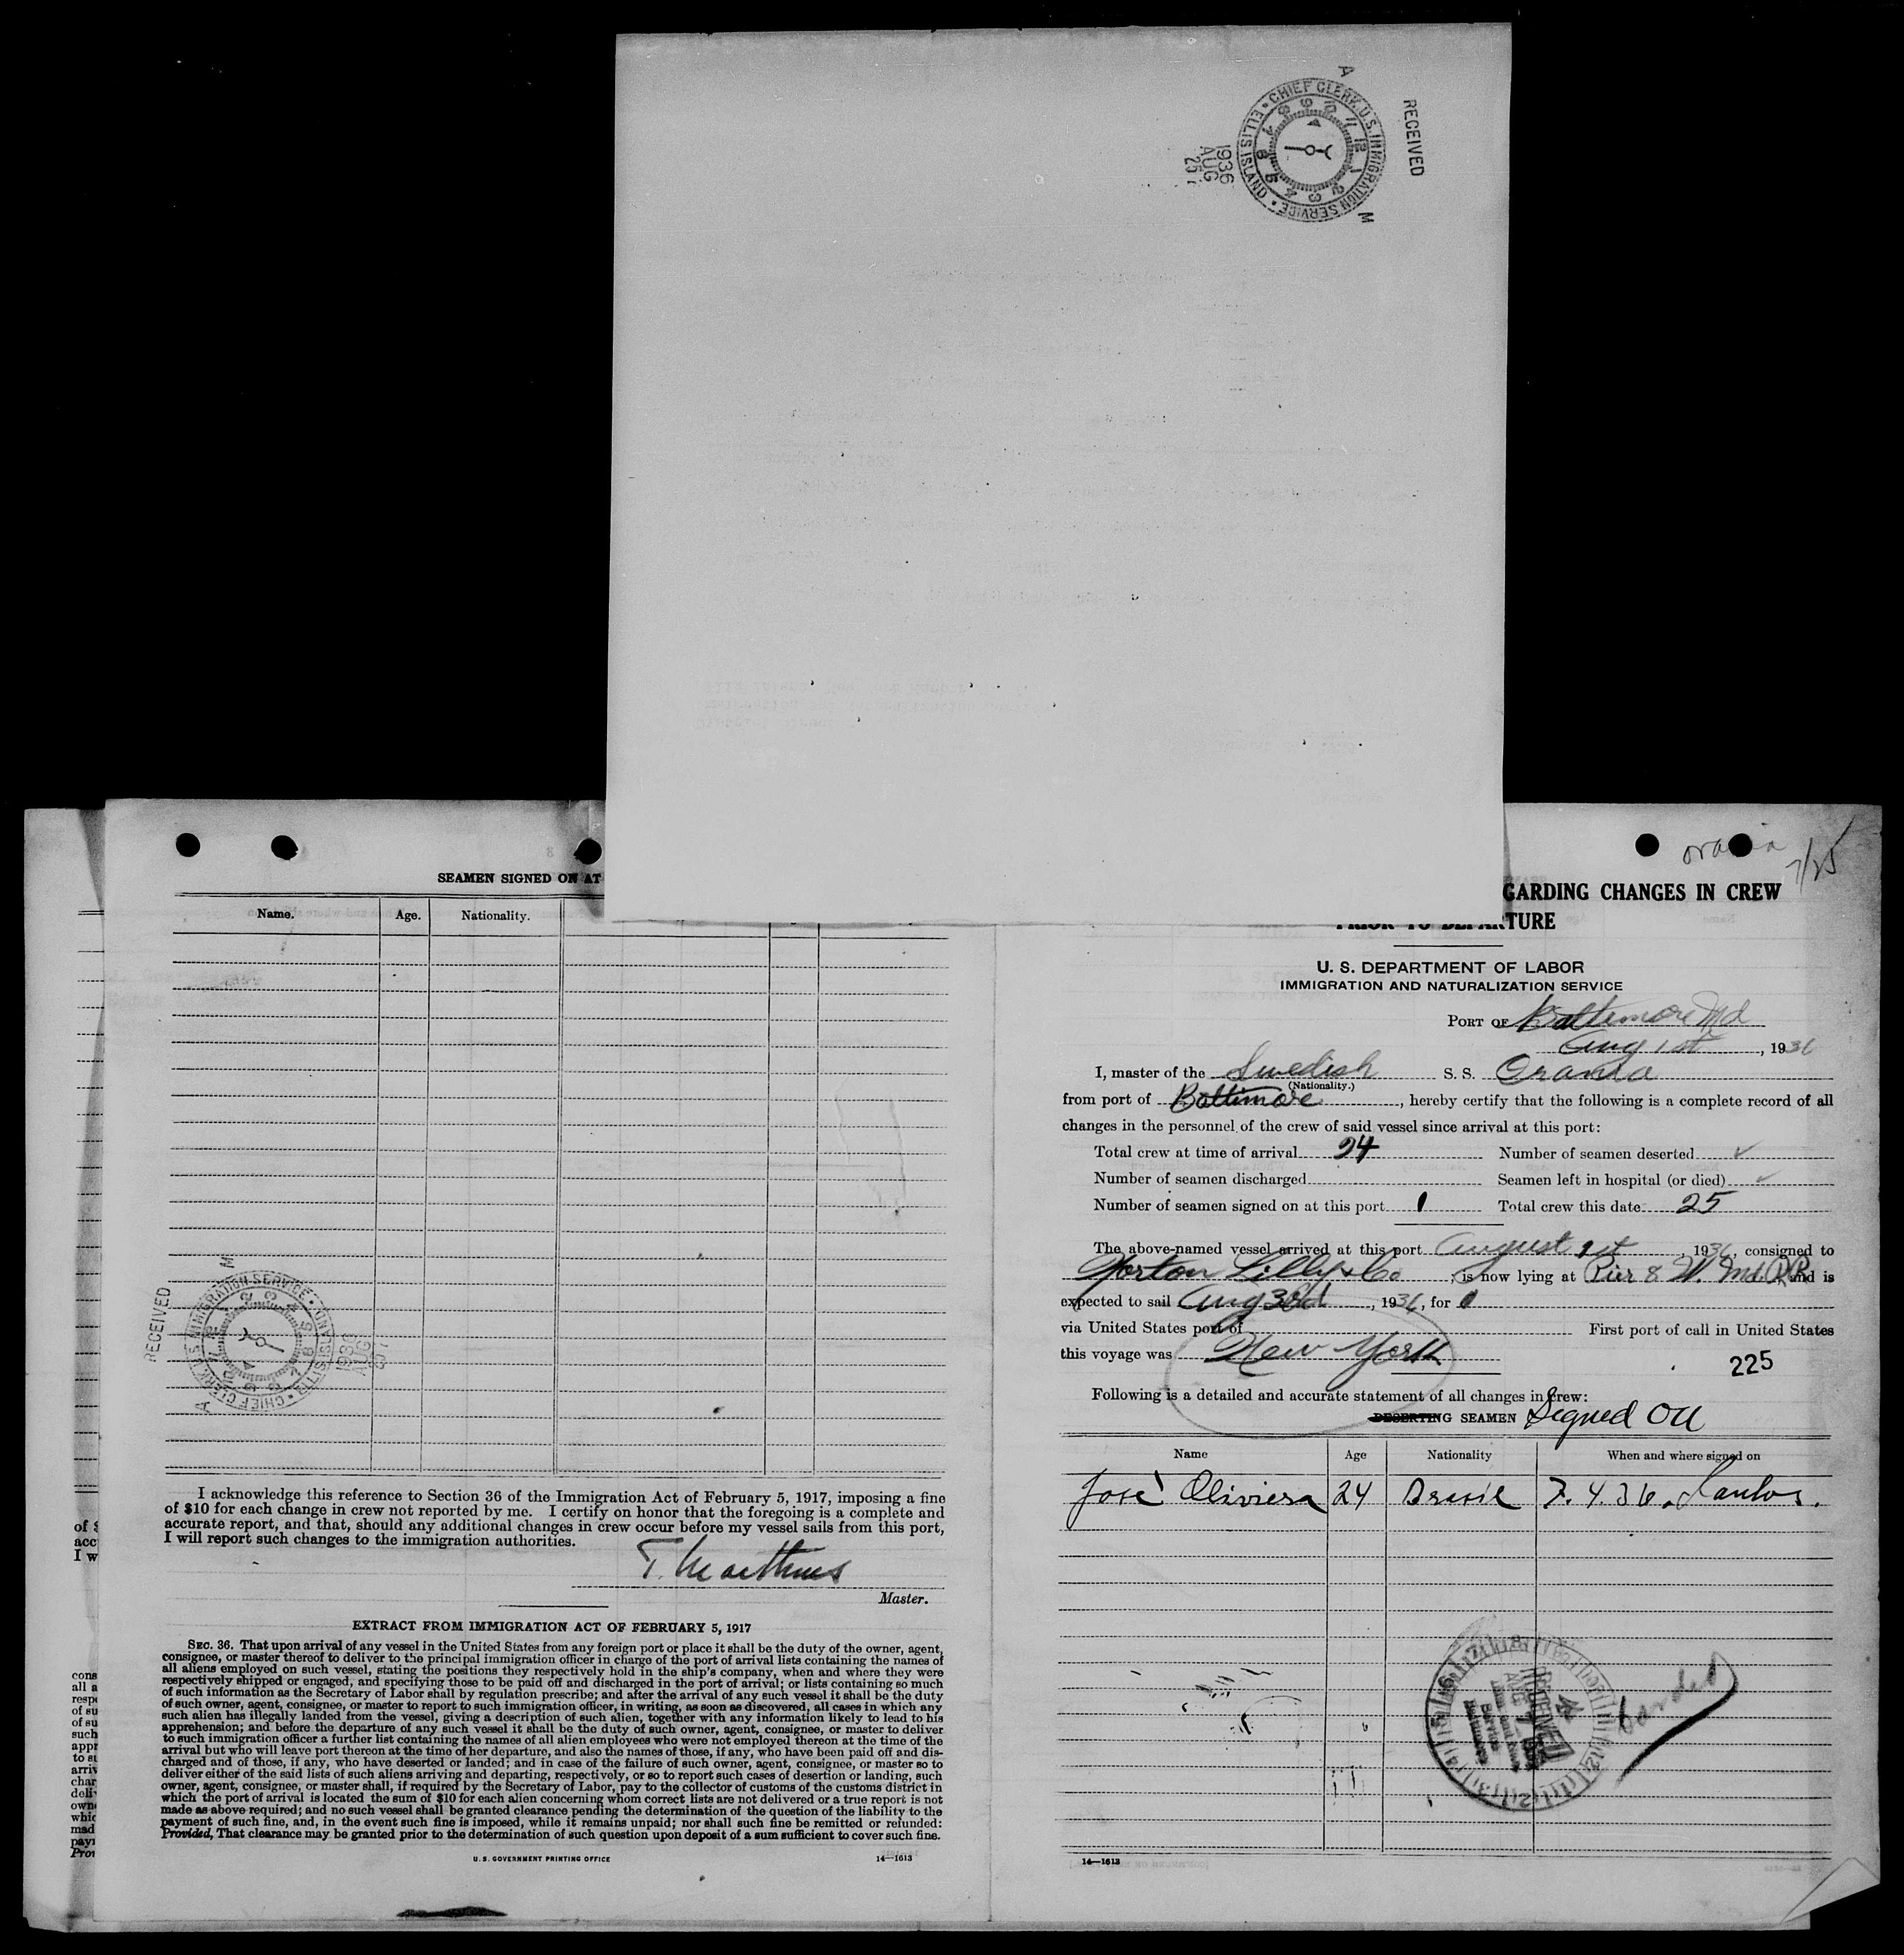 RECEIVED
A M
CHIEF CLERK, U.S. IMMIGRATION SERVICE • ELLIS ISLAND •
1936
AUG
25
SEAMEN SIGNED ON AT
Name. Age. Nationality.
RECEIVED
A M
CHIEF CLERK, U.S. IMMIGRATION SERVICE • ELLIS ISLAND •
AUG
I acknowledge this reference to Section 36 of the Immigration Act of February 5, 1917, imposing a fine
of $10 for each change in crew not reported by me. I certify on honor that the foregoing is a complete and
accurate report, and that, should any additional changes in crew occur before my vessel sails from this port,
I will report such changes to the immigration authorities.
Master.
EXTRACT FROM IMMIGRATION ACT OF FEBRUARY 5, 1917
SEC. 36. That upon arrival of any vessel in the United States from any foreign port or place it shall be the duty of the owner, agent,
consignee, or master thereof to deliver to the principal immigration officer in charge of the port of arrival lists containing the names of
all aliens employed on such vessel, stating the positions they respectively hold in the ship's company, when and where they were
respectively shipped or engaged, and specifying those to be paid off and discharged in the port of arrival; or lists containing so much
of such information as the Secretary of Labor shall by regulation prescribe; and after the arrival of any such vessel it shall be the duty
of such owner, agent, consignee, or master to report to such immigration officer, in writing, as soon as discovered, all cases in which any
such alien has illegally landed from the vessel, giving a description of such alien, together with any information likely to lead to his
apprehension; and before the departure of any such vessel it shall be the duty of such owner, agent, consignee, or master to deliver
to such immigration officer a further list containing the names of all alien employees who were not employed thereon at the time of the
arrival but who will leave port thereon at the time of her departure, and also the names of those, if any, who have been paid off and dis-
charged and of those, if any, who have deserted or landed; and in case of the failure of such owner, agent, consignee, or master so to
deliver either of the said lists of such aliens arriving and departing, respectively, or so to report such cases of desertion or landing, such
owner, agent, consignee, or master shall, if required by the Secretary of Labor, pay to the collector of customs of the customs district in
which the port of arrival is located the sum of $10 for each alien concerning whom correct lists are not delivered or a true report is not
made as above required; and no such vessel shall be granted clearance pending the determination of the question of the liability to the
payment of such fine, and, in the event such fine is imposed, while it remains unpaid; nor shall such fine be remitted or refunded:
Provided, That clearance may be granted prior to the determination of such question upon deposit of a sum sufficient to cover such fine.
U. S. GOVERNMENT PRINTING OFFICE 14—1613
7/25
GARDING CHANGES IN CREW
PRIOR TO DEPARTURE
U. S. DEPARTMENT OF LABOR
IMMIGRATION AND NATURALIZATION SERVICE
PORT OF Baltimore Md
Aug 1st, 1936
I, master of the Swedish S. S. Orania
(Nationality.)
from port of Baltimore, hereby certify that the following is a complete record of all
changes in the personnel of the crew of said vessel since arrival at this port:
Total crew at time of arrival 24 Number of seamen deserted ✓
Number of seamen discharged Seamen left in hospital (or died) ✓
Number of seamen signed on at this port 1 Total crew this date 25
The above-named vessel arrived at this port August 1st, 1936, consigned to
Norton Lilly & Co; is now lying at Pier 8 W. Md. RR and is
expected to sail Aug 3rd, 1936, for
via United States port of First port of call in United States
this voyage was New York
225
Following is a detailed and accurate statement of all changes in crew:
DESERTING SEAMEN Signed On
Name Age Nationality When and where signed on
José Oliviera 24 Brasil 7. 4. 36. Santos.
RECEIVED
AUG
14—1613